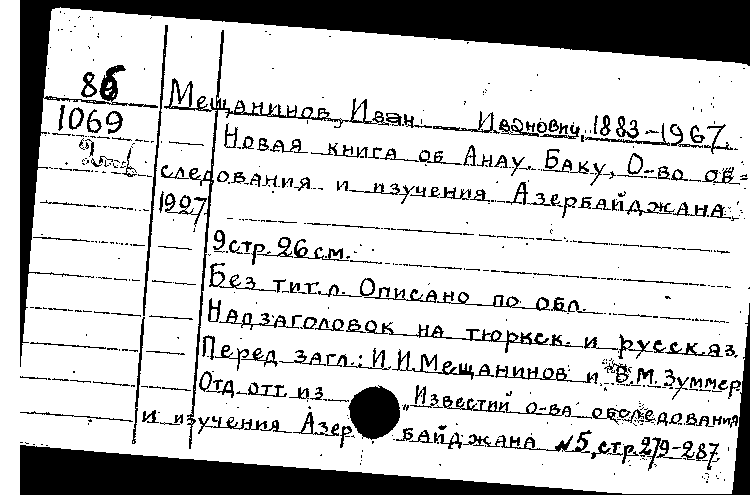 86
1069
Мещанинов, Иван Иванович, 1883-1967.
Новая книга об Анау. Баку, О-во об=
следования и изучения Азербайджана,
1927
9 стр. 26 см.
Без тит. л. Описано по обл.
Надзаголовок на тюркск. и русск. яз.
Перед загл.: И.И. Мещанинов и В.М. Зуммер
Отд. отт. из „Известий о-ва обследования
и изучения Азербайджана №5, стр. 279-287